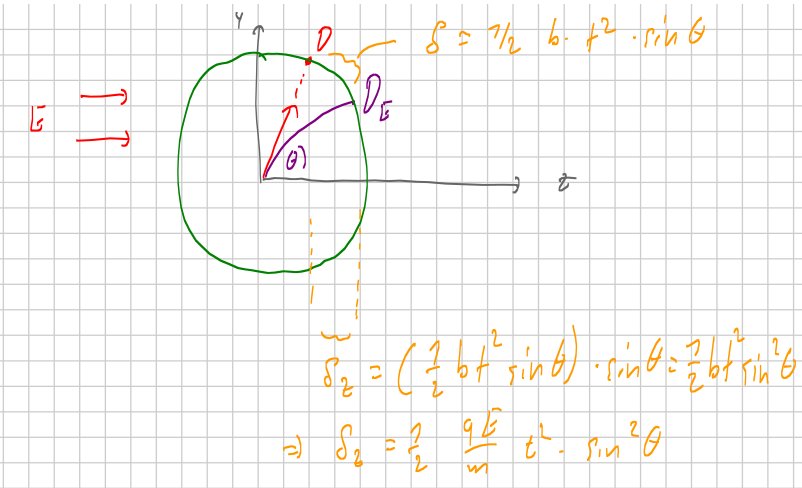 y
D
δ = 1/2 b · t² · sin θ
D_E
E
θ
z
δ_z = (1/2 bt² sin θ) · sin θ = 1/2 bt² sin² θ
⇒ δ_z = 1/2 qE/m t² · sin² θ